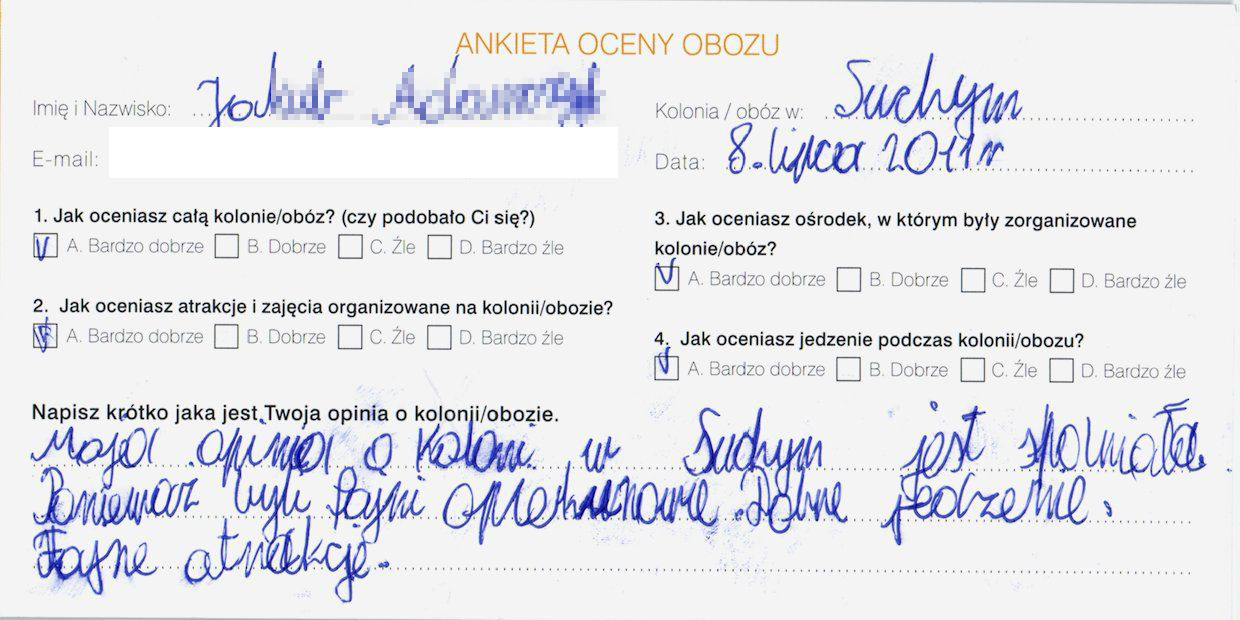 ANKIETA OCENY OBOZU
Imię i Nazwisko:
Kolonia / obóz w: Suchym
E-mail:
Data: 8. lipca 2011 r
1. Jak oceniasz całą kolonie/obóz? (czy podobało Ci się?)
V A. Bardzo dobrze B. Dobrze C. Źle D. Bardzo źle
2. Jak oceniasz atrakcje i zajęcia organizowane na kolonii/obozie?
A. Bardzo dobrze B. Dobrze C. Źle D. Bardzo źle
3. Jak oceniasz ośrodek, w którym były zorganizowane
kolonie/obóz?
V A. Bardzo dobrze B. Dobrze C. Źle D. Bardzo źle
4. Jak oceniasz jedzenie podczas kolonii/obozu?
V A. Bardzo dobrze B. Dobrze C. Źle D. Bardzo źle
Napisz krótko jaka jest Twoja opinia o kolonii/obozie.
Moja opinia o koloni w Suchym jest spaniała.
Poniewarz byli fajni opiekunowie. Dobre jedzenie.
Fajne atrakcje.